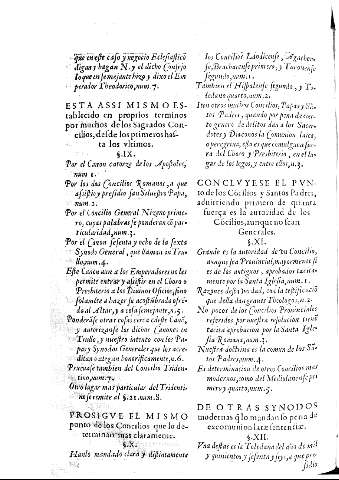 que en este caso y negocio Eclesiastico
digan y hagan N. y el dicho Consejo
lo que en semejante hizo y dixo el Em-
perador Theodorico, num. 7.
ESTA ASSI MISMO ES-
tablecido en propios terminos
por muchos de los Sagrados Con-
cilios, desde los primeros has-
ta los vltimos.
§. IX.
Por el Canon catorze de los Apostoles,
num. 1.
Por los dos Concilios Romanos, a que
assistio y presidio san Siluestro Papa,
num. 2.
Por el Concilio General Niceno prime-
ro, cuyas palabras se ponderan cō par-
ticularidad, num. 3.
Por el Canon sesenta y ocho de la sexta
Synodo General, que llaman in Tru-
llo, num. 4.
Este Canon aun a los Emperadores no les
permite entrar y assistir en el Coro o
Presbiterio a los Diuinos Oficios, sino
solamēte a hazer su acostūbrada ofrē-
da al Altar, y a cosa semejante, n. 5.
Ponderāse otras cosas cerca deste Canō,
y autorizanse los dichos Canones in
Trullo, y nuestro intento con los Pa-
pas y Synodos Generales que los acre-
ditan o alegan honorificamente, n. 6.
Prueuase tambien del Concilio Triden-
tino, num. 7.
Otro lugar mas particular del Tridenti-
no se remite al §. 21. num. 8.
PROSIGVE EL MISMO
punto de los Concilios que lo de-
terminan mas claramente.
§. X.
Hanlo mandado clara y distintamente
los Concilios Laodicense,
Bracharense primero, y Turonense
segundo, num. 1.
Tambien el Hispalense segundo, y To-
ledano quarto, num. 2.
Iten otros muchos Concilios, Papas y Sā-
tos Padres, quando por pena de cier-
to genero de delitos dan a los Sacer-
dotes y Diaconos la Comunion laica,
o peregrina, esto es que comulguen fue-
ra del Coro y Presbiterio, en el lu-
gar de los legos, y entre ellos, n. 3.
CONCLVYESE EL PVN-
to de los Cōcilios y Santos Padres,
aduirtiendo primero de quanta
fuerça es la autoridad de los
Cōcilios, aunque no sean
Generales.
§. XI.
Grande es la autoridad de vn Concilio,
aunque sea Prouincial, mayormente si
es de los antiguos, aprobados tacita-
mente por la Santa Iglesia, num. 1.
Razones desta verdad, con la testificaciō
que della dan graues Theologos, n. 2.
No pocos de los Concilios Prouinciales
referidos por nuestra resolucion tienē
tacita aprobacion por la Santa Igle-
sia Romana, num. 3.
Nuestra doctrina es la comun de los Sā-
tos Padres, num. 4.
Es determinacion de otros Concilios mas
modernos, como del Mediolanense pri-
mero y quarto, num. 5.
DE OTRAS SYNODOS
modernas q̄ lo mandan so pena de
excomunion latae sententiae.
§. XII.
Vna destas es la Toledana del año de mil
y quinientos y sesenta y seys, a que pre-
sidio